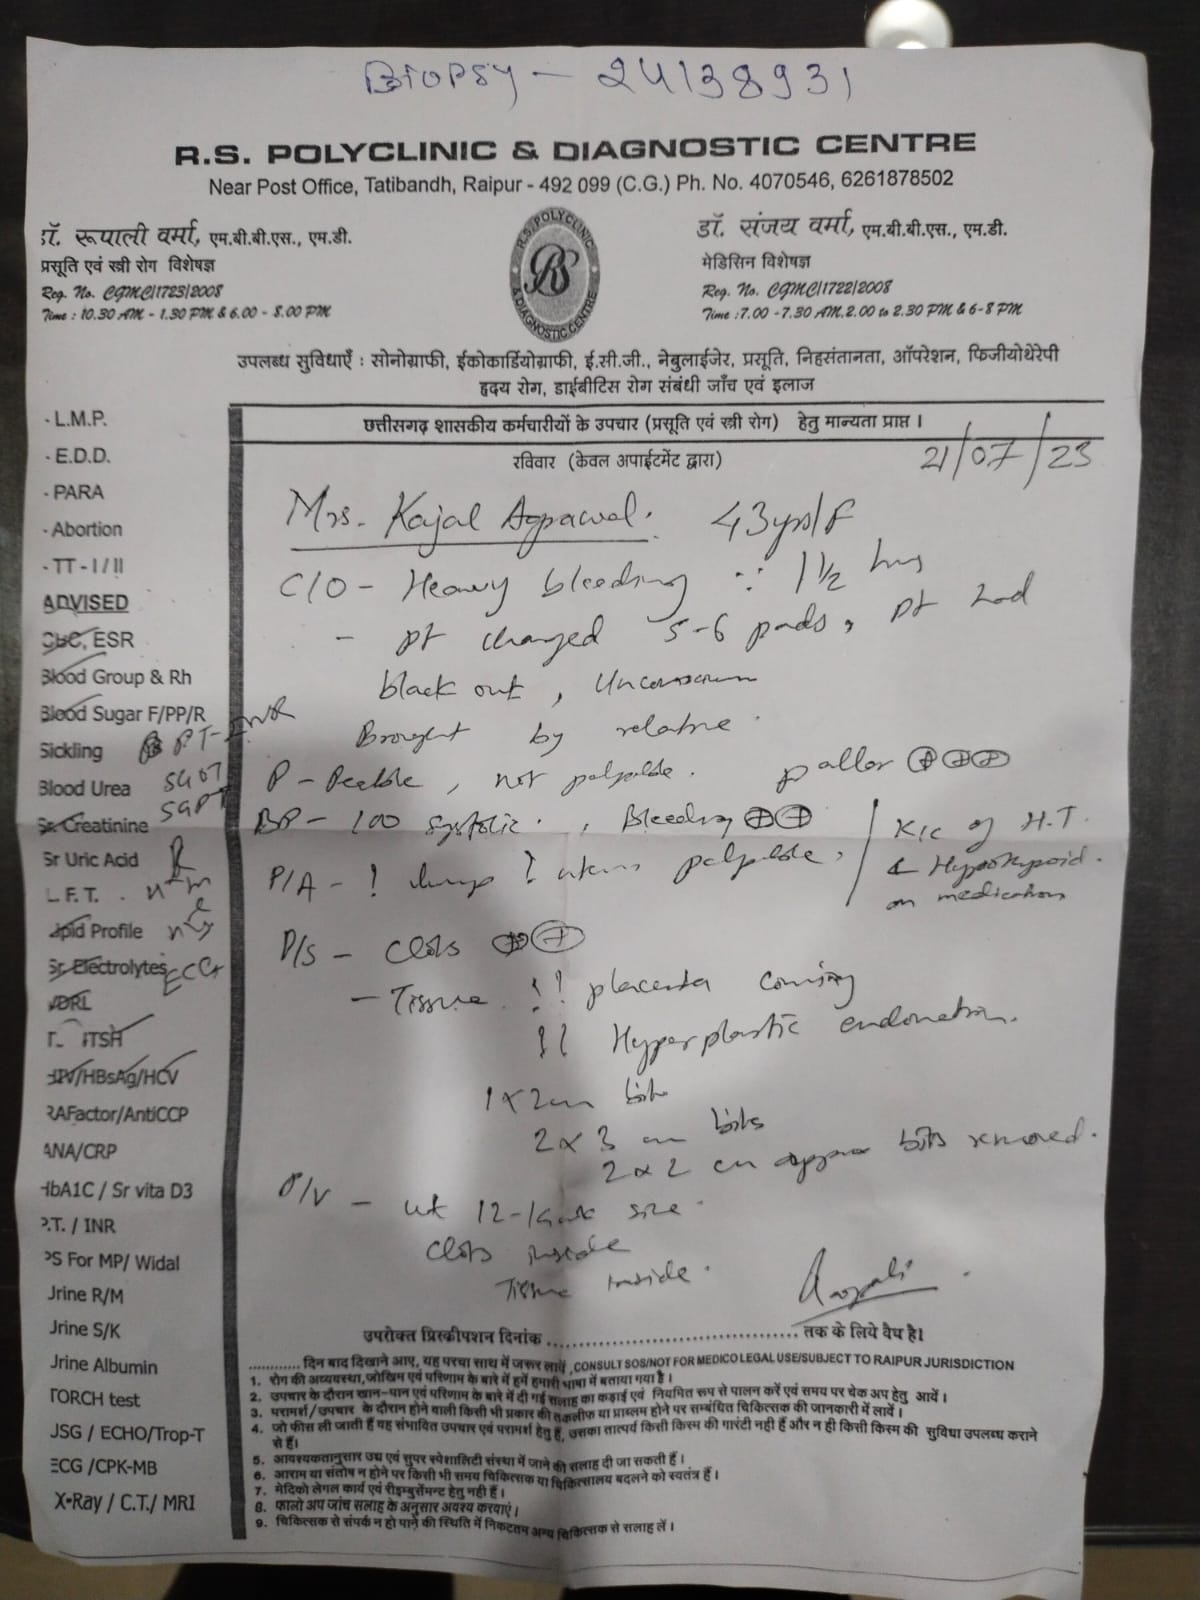 BIOPSY - 24138931
R.S. POLYCLINIC & DIAGNOSTIC CENTRE
Near Post Office, Tatibandh, Raipur - 492 099 (C.G.) Ph. No. 4070546, 6261878502
डॉ. रूपाली वर्मा, एम.बी.बी.एस., एम.डी.
प्रसूति एवं स्त्री रोग विशेषज्ञ
Reg. No. CGMC/1723/2008
Time : 10.30 AM - 1.30 PM & 6.00 - 8.00 PM
R.S. POLYCLINIC & DIAGNOSTIC CENTRE
RS
डॉ. संजय वर्मा, एम.बी.बी.एस., एम.डी.
मेडिसिन विशेषज्ञ
Reg. No. CGMC/1722/2008
Time : 7.00 - 7.30 AM, 2.00 to 2.30 PM & 6-8 PM
उपलब्ध सुविधाएँ : सोनोग्राफी, ईकोकार्डियोग्राफी, ई.सी.जी., नेबुलाईजेर, प्रसूति, निहसंतानता, ऑपरेशन, फिजीयोथेरेपी
हृदय रोग, डाईबीटिस रोग संबंधी जाँच एवं इलाज
छत्तीसगढ़ शासकीय कर्मचारीयों के उपचार (प्रसूति एवं स्त्री रोग) हेतु मान्यता प्राप्त ।
रविवार (केवल अपाईटमेंट द्वारा)
21/07/23
- L.M.P.
- E.D.D.
- PARA
- Abortion
- TT - I / II
ADVISED
CBC, ESR
Blood Group & Rh
Blood Sugar F/PP/R
Sickling PT-INR
Blood Urea SGOT
SGPT
Sr. Creatinine
Sr Uric Acid
L.F.T.
Lipid Profile
Sr. Electrolytes ECG
VDRL
TSH
HIV/HBsAg/HCV
RAFactor/AntiCCP
ANA/CRP
HbA1C / Sr vita D3
P.T. / INR
PS For MP/ Widal
Urine R/M
Urine S/K
Urine Albumin
TORCH test
JSG / ECHO/Trop-T
ECG /CPK-MB
X-Ray / C.T./ MRI
Mrs. Kajal Agrawal. 43yrs/F
C/O - Heavy bleeding ∵ 1½ hrs
- pt changed 5-6 pads, pt had
black out, Unconscious
Brought by relative.
P - Feeble, not palpable. pallor ⊕⊕⊕
BP - 100 systolic., Bleeding ⊕⊕
K/C of H.T.
& Hypothyroid.
on medication
P/A - ! lump ? uterus palpable,
P/S - Clots ⊕⊕
- Tissue !! placenta coming
!! Hyperplastic endometrium.
1×2cm bit
2×3 cm bits
2×2 cm approx bits removed.
P/V - ut 12-14wk size.
Clots inside
Tissue inside.
Rupali
उपरोक्त प्रिस्कीपशन दिनांक .......... तक के लिये वैध है।
............ दिन बाद दिखाने आए, यह परचा साथ में जरूर लावें ,CONSULT SOS/NOT FOR MEDICO LEGAL USE/SUBJECT TO RAIPUR JURISDICTION
1. रोग की अव्यवस्था,जोखिम एवं परिणाम के बारे में हमें हमारी भाषा में बताया गया है ।
2. उपचार के दौरान खान-पान एवं परिणाम के बारे में दी गई सलाह का कड़ाई एवं नियमित रूप से पालन करें एवं समय पर चेक अप हेतु आवें ।
3. परामर्श/उपचार के दौरान होने वाली किसी भी प्रकार की तकलीफ या प्राब्लम होने पर सम्बंधित चिकित्सक की जानकारी में लावें ।
4. जो फीस ली जाती हैं वह संभावित उपचार एवं परामर्श हेतु है, उसका तात्पर्य किसी किस्म की गारंटी नही हैं और न ही किसी किस्म की सुविधा उपलब्ध कराने
से हैं।
5. आवश्यकतानुसार उच्च एवं सुपर स्पेशालिटी संस्था में जाने की सलाह दी जा सकती हैं ।
6. आराम या संतोष न होने पर किसी भी समय चिकित्सक या चिकित्सालय बदलने को स्वतंत्र हैं ।
7. मेडिको लेगल कार्य एवं रीइम्बुर्समेन्ट हेतु नही हैं ।
8. फालो अप जांच सलाह के अनुसार अवश्य करवाएं ।
9. चिकित्सक से संपर्क न हो पाने की स्थिति में निकटतम अन्य चिकित्सक से सलाह लें ।